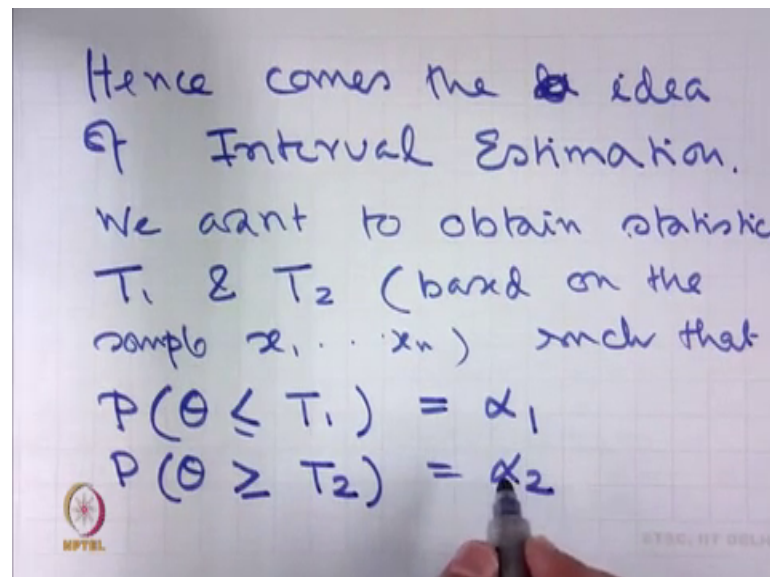 Hence comes the idea
of Interval Estimation.
We want to obtain statistic
T₁ & T₂ (based on the
sample x₁ . . . xₙ) such that
P(θ ≤ T₁) = α₁
P(θ ≥ T₂) = α₂
NPTEL
ETSC, IIT DELHI